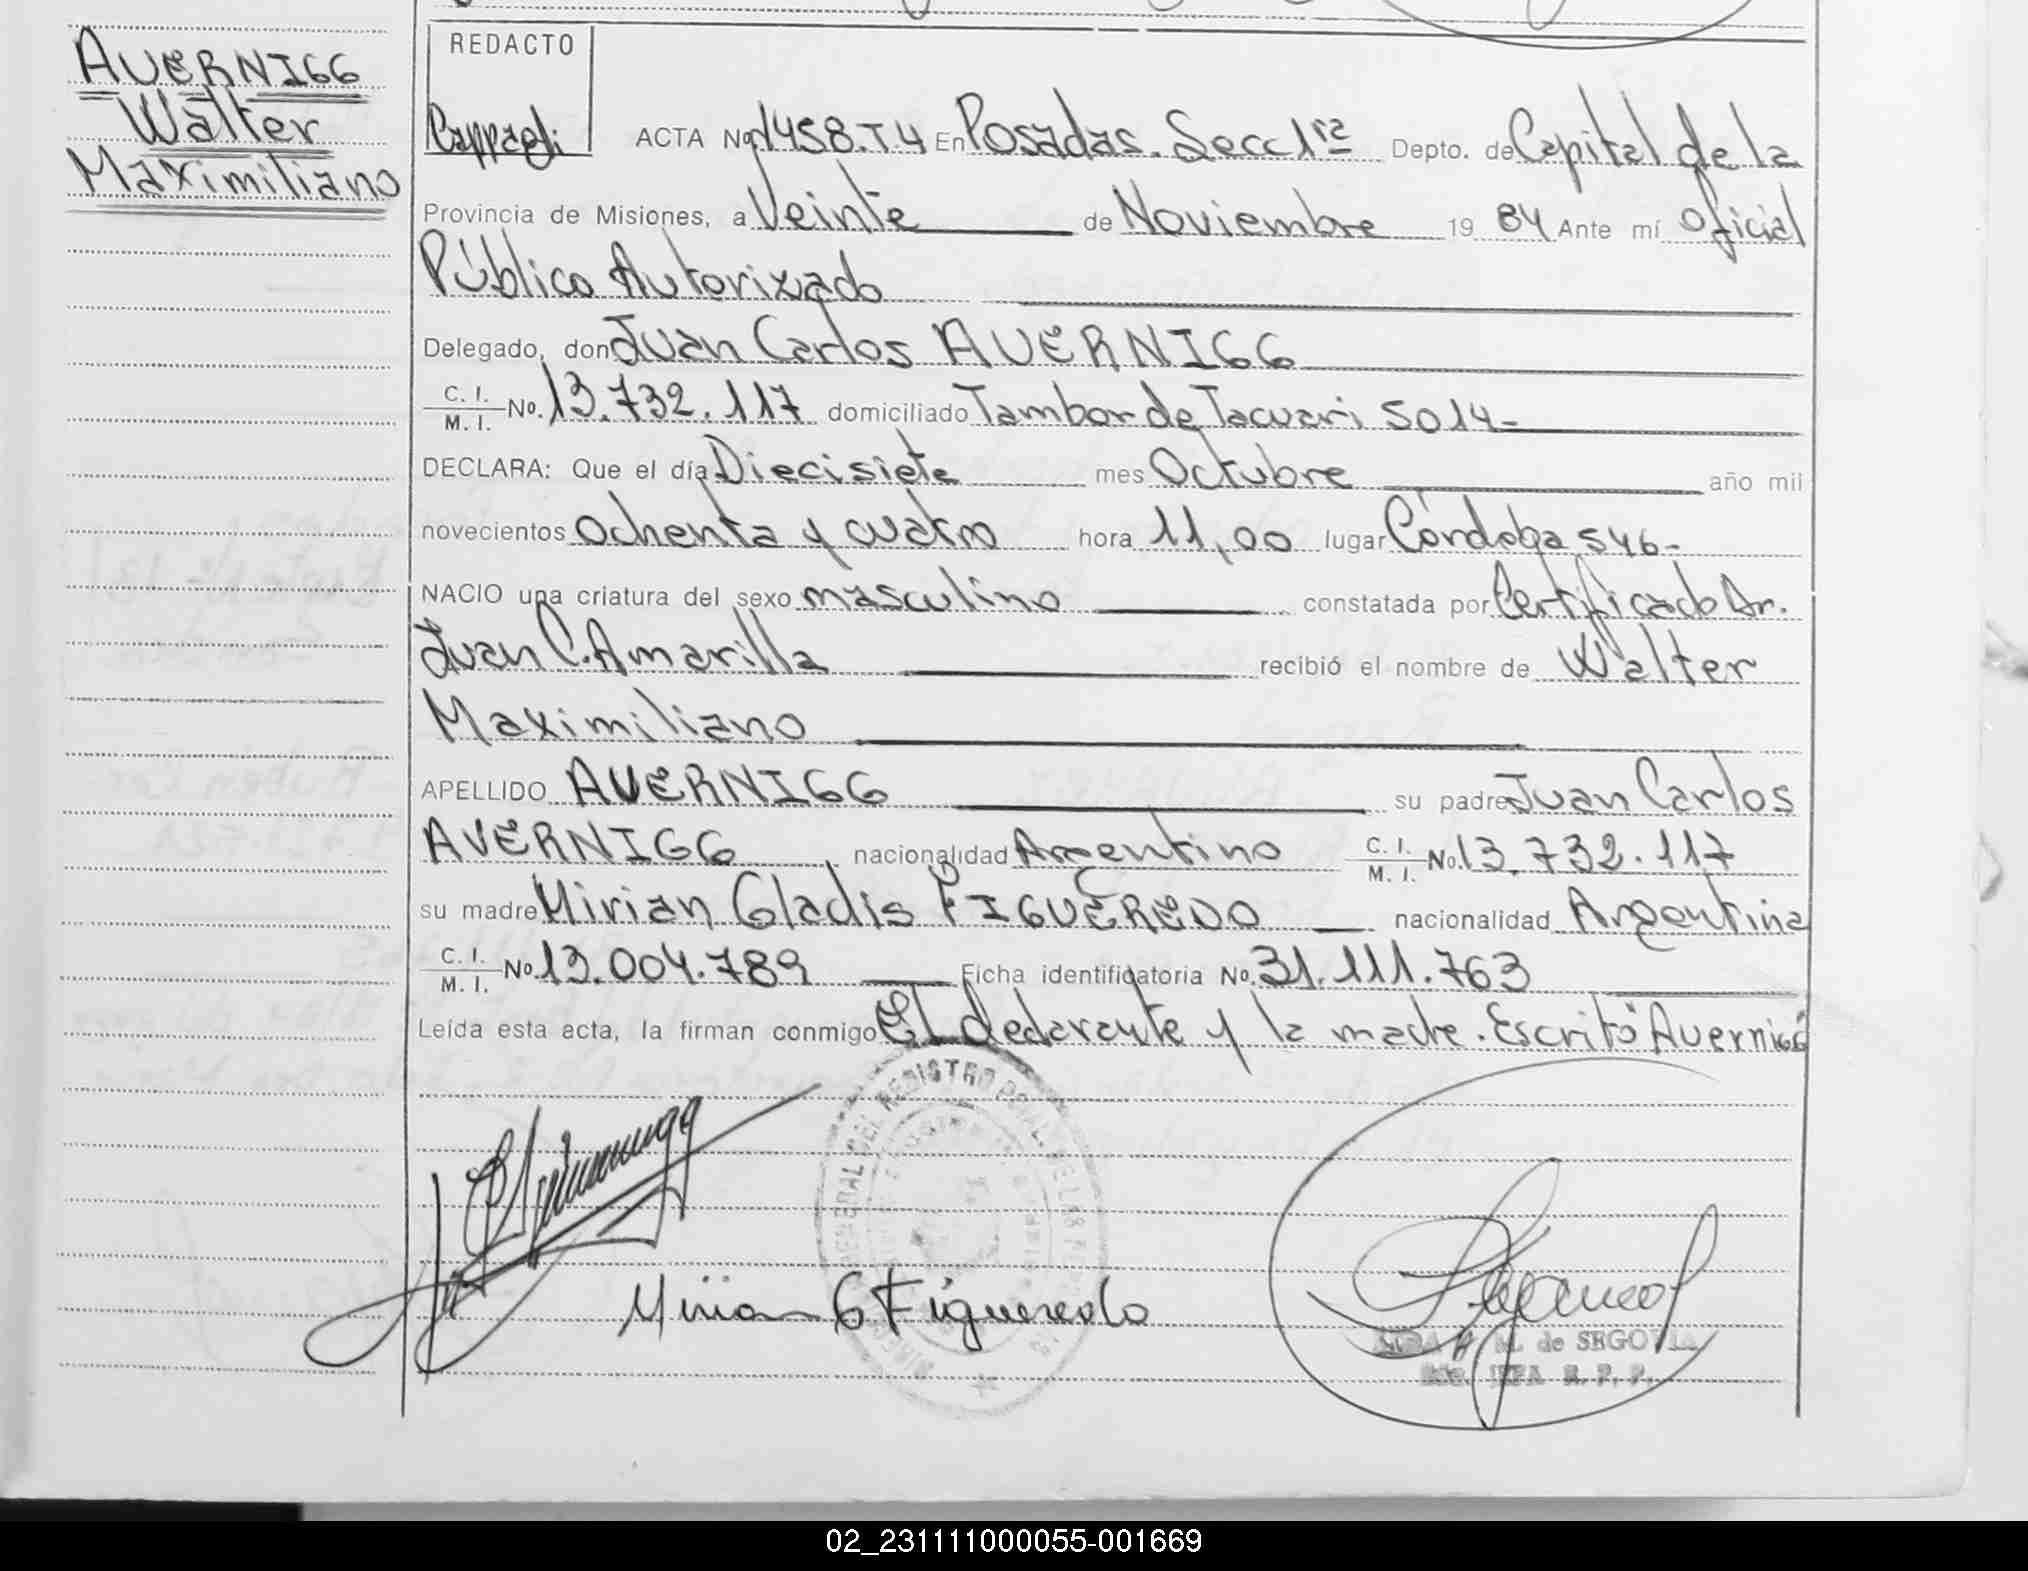 AVERNIGG
Walter
Maximiliano
REDACTO
Cappagli
ACTA No. 1458. T.4 En Posadas. Secc 1ra Depto. de Capital de la
Provincia de Misiones, a Veinte de Noviembre 19 84 Ante mí Oficial
Público Autorizado
Delegado, don Juan Carlos AVERNIGG
C. I.
M. I. No. 13.732.117 domiciliado Tambor de Tacuari 5014-
DECLARA: Que el día Diecisiete mes Octubre año mil
novecientos Ochenta y cuatro hora 11,00 lugar Córdoba 546-
NACIO una criatura del sexo masculino constatada por Certificado Dr.
Juan C. Amarilla recibió el nombre de Walter
Maximiliano
APELLIDO AVERNIGG su padre Juan Carlos
AVERNIGG nacionalidad Argentino C. I. M. I. No. 13.732.117
su madre Mirian Gladis FIGUEREDO nacionalidad Argentina
C. I.
M. I. No. 13.004.789 Ficha identificatoria No. 31.111.763
Leída esta acta, la firman conmigo El declarante y la madre. Escritó Avernigg
GENERAL DEL REGISTRO
Mirian G Figueredo
M. de SEGOVIA
JEFA R. P. P.
02_231111000055-001669